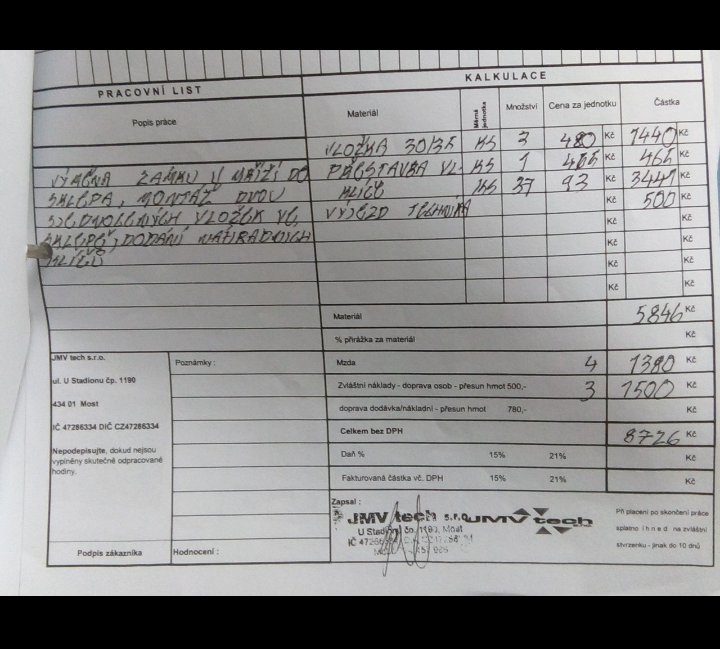 PRACOVNÍ LIST
KALKULACE
Popis práce
Materiál
Měrná jednotka
Množství
Cena za jednotku
Částka
VLOŽKA 30/35 KS 3 480 1440 Kč
VÝMĚNA ZÁMKU V MŘÍŽI DO
PŘESTAVBA VL. KS 1 465 465 Kč
SKLEPA, MONTÁŽ DVOU
KLÍČE KS 37 93 3441 Kč
SJEDNOCENÝCH VLOŽEK VE
VÝJEZD TECHNIKA 500 Kč
SKLEPĚ, DODÁNÍ NÁHRADNÍCH
Kč
KLÍČŮ
Kč
Kč
Kč
Materiál 5846 Kč
% přirážka za materiál Kč
JMV tech s.r.o.
Poznámky :
Mzda 4 1380 Kč
ul. U Stadionu čp. 1190
Zvláštní náklady - doprava osob - přesun hmot 500,- 3 1500 Kč
434 01 Most
doprava dodávka/nákladní - přesun hmot 780,- Kč
IČ 47286334 DIČ CZ47286334
Celkem bez DPH 8726 Kč
Nepodepisujte, dokud nejsou
vyplněny skutečně odpracované
hodiny.
Daň % 15% 21% Kč
Fakturovaná částka vč. DPH 15% 21% Kč
Zapsal :
JMV tech s.r.o.
U Stadionu čp. 1190, Most
JMV tech
Při placení po skončení práce
splatno ihned na zvláštní
stvrzenku - jinak do 10 dnů
Podpis zákazníka
Hodnocení :